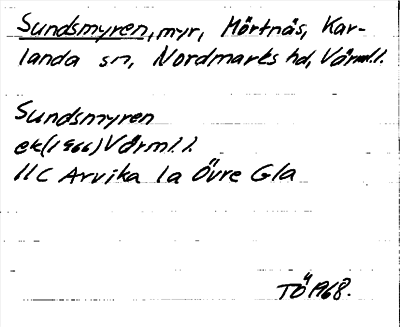 Sundsmyren, myr, Mörtnäs, Kar-
landa sn, Nordmarks hd, Värml.l.
Sundsmyren
ek(1966) Värml.l.
11C Arvika 1a Övre Gla
TÖ 1968.